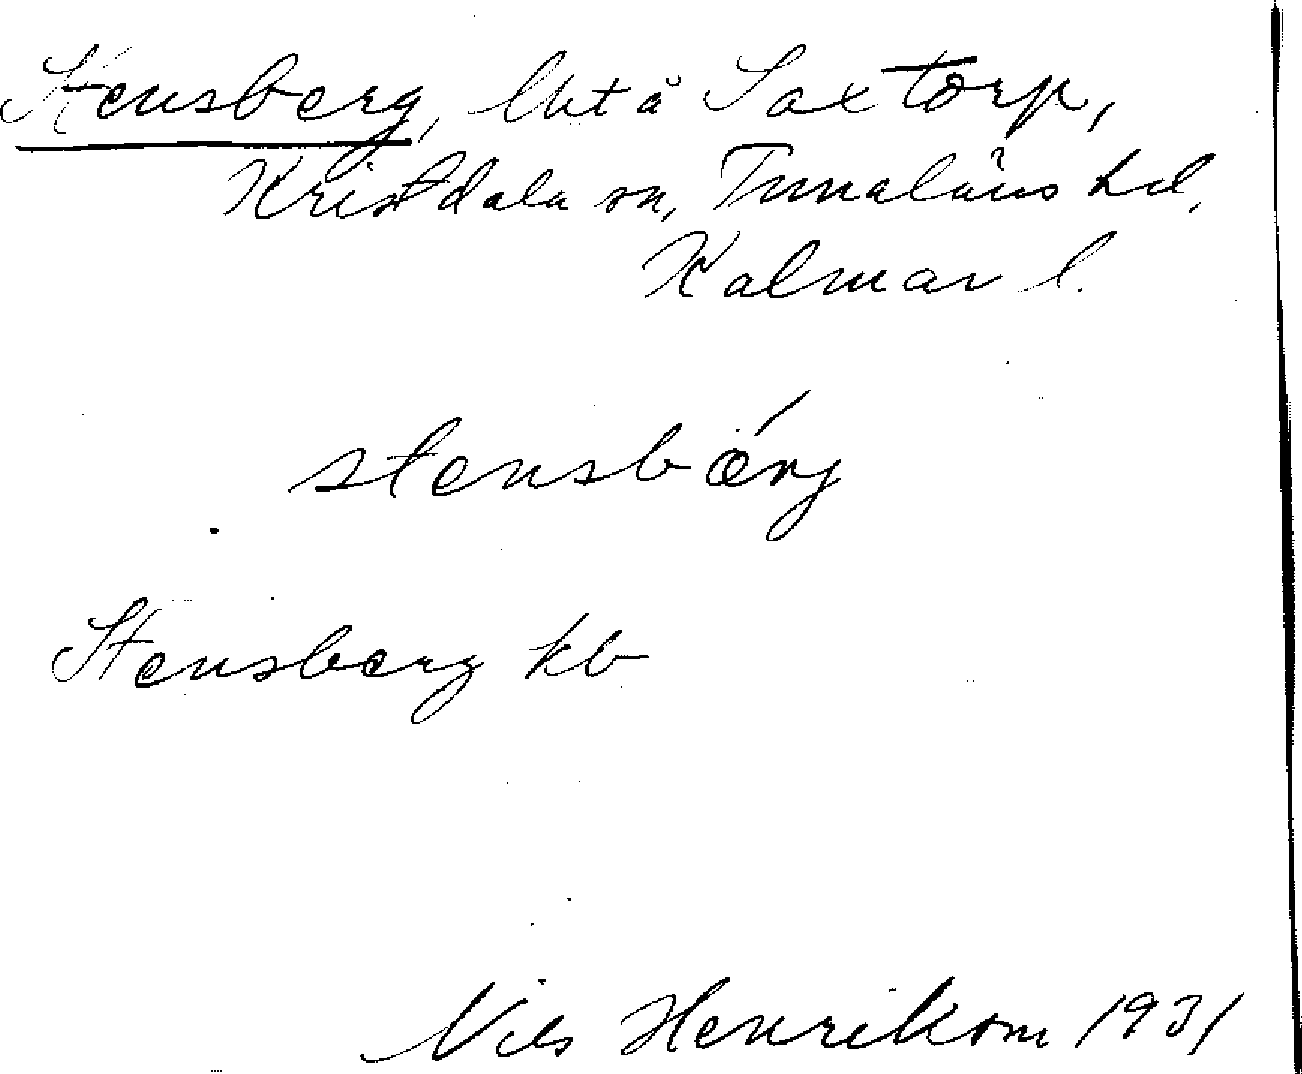 Stensberg, lht å Saxtorp,
Kristdala sn, Tunaläns hd,
Kalmar l.
stensbärj
Stensberg kb
Nils Henrikson 1931